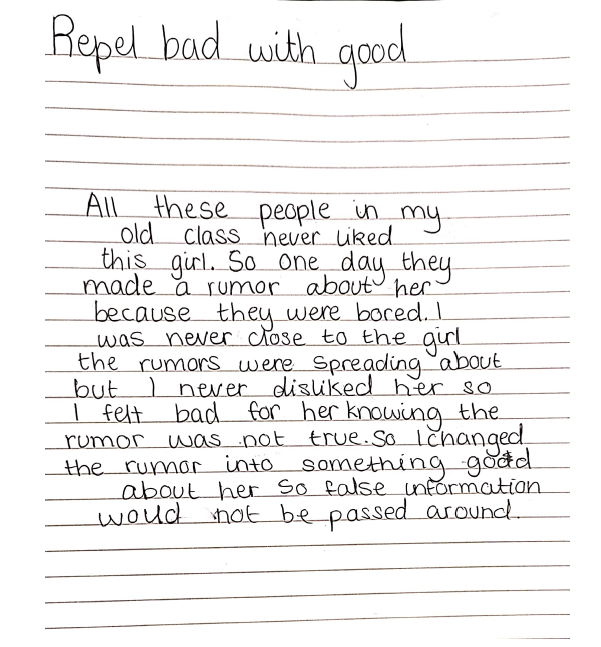 Repel bad with good
All these people in my
old class never liked
this girl. So one day they
made a rumor about her
because they were bored. I
was never close to the girl
the rumors were spreading about
but I never disliked her so
I felt bad for her knowing the
rumor was not true. So I changed
the rumor into something good
about her so false information
would not be passed around.